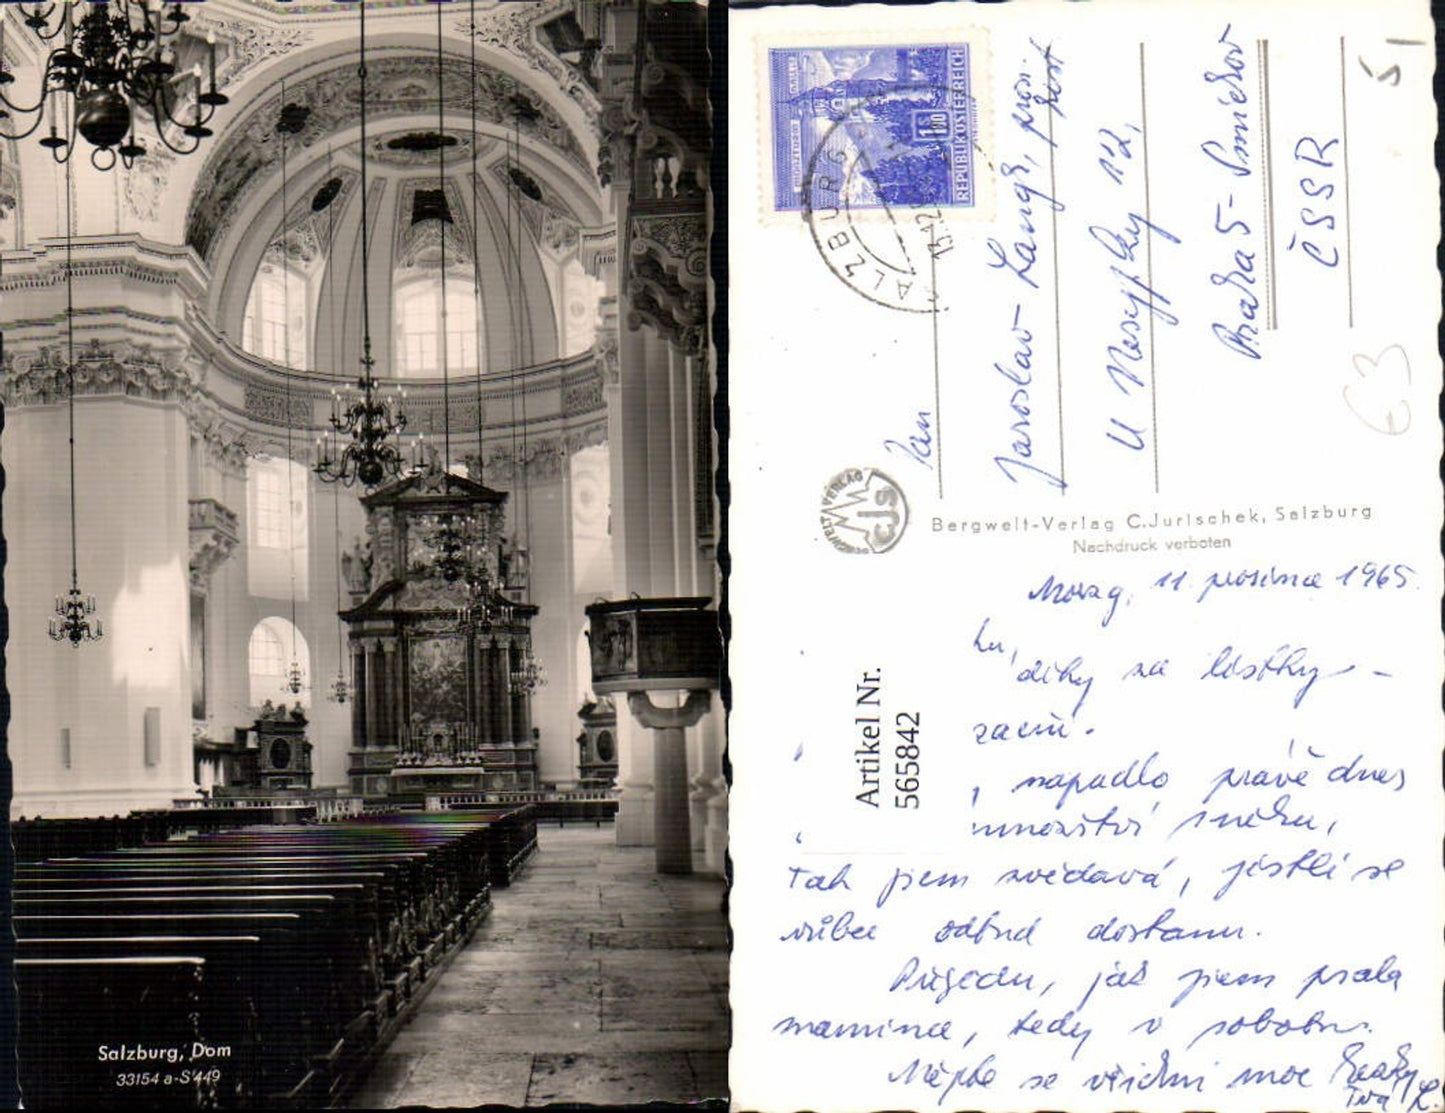 Salzburg, Dom
33154 a-S 449
REPUBLIK ÖSTERREICH
S
1·80
SALZBURG
13.12
Pan
Jaroslav Lang,
U Nesypky 12,
Praha 5 - Smíchov
ČSSR
51
€3
BERGWELT VERLAG
CJS
Bergwelt-Verlag C.Jurischek, Salzburg
Nachdruck verboten
11. prosince 1965.
díky za lístky -
Artikel Nr.
565842
napadlo právě dnes
množství sněhu,
Tak jsem zvědavá, jestli se
vůbec odtud dostanu.
Přijedu, jak jsem psala
mamince, tedy v sobotu.
Mějte se všichni moc hezky
Tvá L.